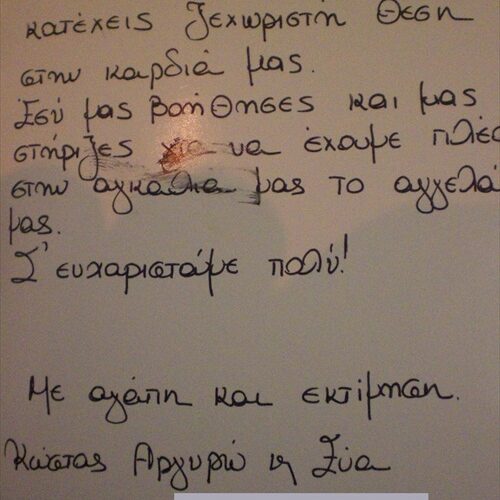 κατέχεις ξεχωριστή θέση
στην καρδιά μας.
Εσύ μας βοήθησες και μας
στήριζες για να έχουμε πλέο
στην αγκαλιά μας το αγγελά
μας.
Σ' ευχαριστάμε πολύ!
Με αγάπη και εκτίμηση.
Κώστας Αργυρώ η Εύα